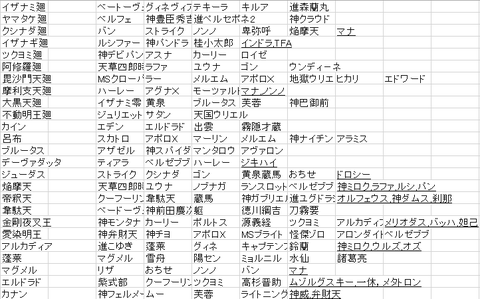 イザナミ廻 ベートーヴェン ヴィネヴィア テキーラ キルア 進森蘭丸
ヤマタケ廻 ベルフェ 神豊臣秀吉 進ベルゼボネ2 神クラウド
クシナダ廻 バン ストライク ノンノ 卑弥呼 焔摩天 マナ
イザナギ廻 ルシファー 神パンドラ 桂小太郎 インドラ,TFA
ツクヨミ廻 神デビパン アスナ カーリー ロイゼ
阿修羅廻 天草四郎時 ラファ ユウナ ゴン ウンディーネ
毘沙門天廻 MSクローバー ラー メルエム アポロX 地獄ウリエ ヒカリ エドワード
摩利支天廻 ハーレー アグナX モーツァルト マナ,ノンノ
大黒天廻 イザナミ零 黄泉 ブルータス 芙蓉 神巴御前
不動明王廻 ジュリエット サタン 天国ウリエル
カイン エデン エルドラド 出雲 霧隠才蔵
呂布 スカトロ アポロX マーリン メルエム 神ナイチン アラミス
ブルータス アザゼル 神スパイダー マンタロウ アヴァロン
デーヴァダッタ ティアラ ベルゼブブ ハーレー ジキハイ
ジューダス ストライク クシナダ ゴン 黄泉 蔵馬 おちせ ドロシー
焔摩天 天草四郎 ユウナ ノブナガ ランスロット ベルゼブブ 神ミロク,ラファ,ルシ,バン
帝釈天 クーフーリン 韋駄天 蔵馬 神ガブリエ 進ユグドラ オルフェウス,神ダムス,刹那
韋駄天 ベートーヴェン 神前田慶次 躯 徳川綱吉 刀霧要
金剛夜叉王 神モンタナ カーリー ボルトス 源義経 ツクヨミ アルカディア メリオダス,バッハ,妲己
愛染明王 神弁財天 神チヨ アポロX MSブライト 怪傑ゾロ アロンダイト ベルゼブブ
アルカディア 進こゆき 蓬莱 グィネ キャプテン 鈴蘭 神ミロク,ウルズ,オズ
蓬莱 マグメル 雪舟 陽セン ミョルニル 水仙 諸葛亮
マグメル リザ おちせ ノンノ バン マナ
エルドラド 紫式部 クーフーリン ツクヨミ 高杉晋助 ムゾルグスキー,一休,メタトロン
カナン 神フェルメール ムー 芙蓉 ライトニング 神威,弁財天